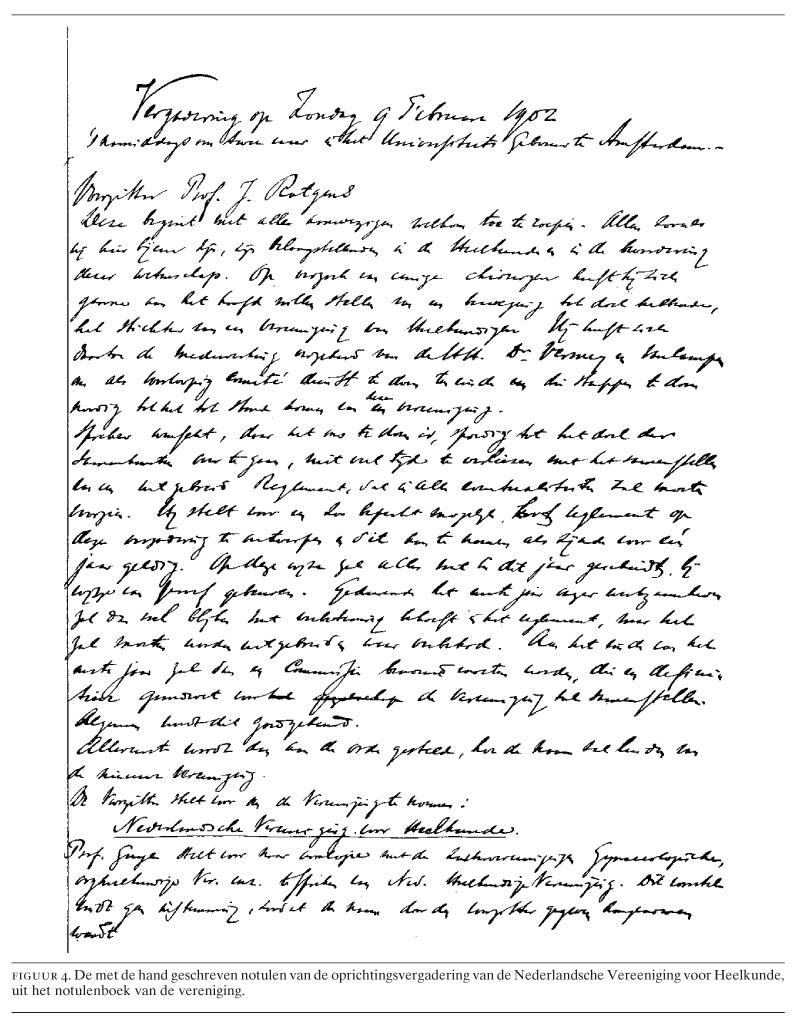 Vergadering op Zondag 9 Februari 1902
's namiddags om twee uur in het Universiteits Gebouw te Amsterdam.–
Voorzitter Prof. J. Rotgans
Deze begint met allen aanwezigen welkom toe te roepen. Allen zooals
wij hier bijeen zijn, zijn belangstellenden in de Heelkunde en in de beoefening
dezer wetenschap. Op verzoek van eenige chirurgen heeft hij zich
gaarne aan het hoofd willen stellen van een beweging tot doel hebbende,
het stichten van een vereeniging van Heelkundigen. Hij heeft zich
daartoe de medewerking verzekerd van de HH. Dr. Vermey en
om als voorloopig Comité dienst te doen ten einde die stappen te doen
noodig tot het tot stand komen van deze vereeniging.
Spreker wenscht, daar het ons te doen is, spoedig tot het doel der
over te gaan, niet veel tijd te verliezen met het samenstellen
van een uitgebreid Reglement, dat in alle eventualiteiten zal moeten
voorzien. Hij stelt voor een zoo beperkt mogelijk reglement op
deze vergadering te ontwerpen en dit aan te nemen als zijnde voor één
jaar geldig. Op deze wijze zal alles wat in dit jaar geschiedt, bij
wijze van proef gebeuren. Gedurende het eerste jaar onzer werkzaamheden
zal dan wel blijken wat verbetering behoeft in het reglement, waar het
zal moeten worden uitgebreid en waar verkort. Aan het einde van het
eerste jaar zal dan een Commissie benoemd moeten worden, die een defini-
tieve voor de Vereeniging zal samenstellen.
Algemeen wordt dit goedgekeurd.
Allereerst wordt dan aan de orde gesteld, hoe de naam zal luiden van
de nieuwe Vereeniging.
De Voorzitter stelt voor om de Vereeniging te noemen:
Nederlandsche Vereeniging voor Heelkunde.
Prof. Guye stelt voor naar analogie met de Zustervereenigingen Gynaecologische,
Ver. enz. te spreken van Ned. Heelkundige Vereeniging. Dit voorstel
vindt geen bijstemming, zoodat de naam door den voorzitter gegeven aangenomen
wordt
FIGUUR 4. De met de hand geschreven notulen van de oprichtingsvergadering van de Nederlandsche Vereeniging voor Heelkunde,
uit het notulenboek van de vereniging.